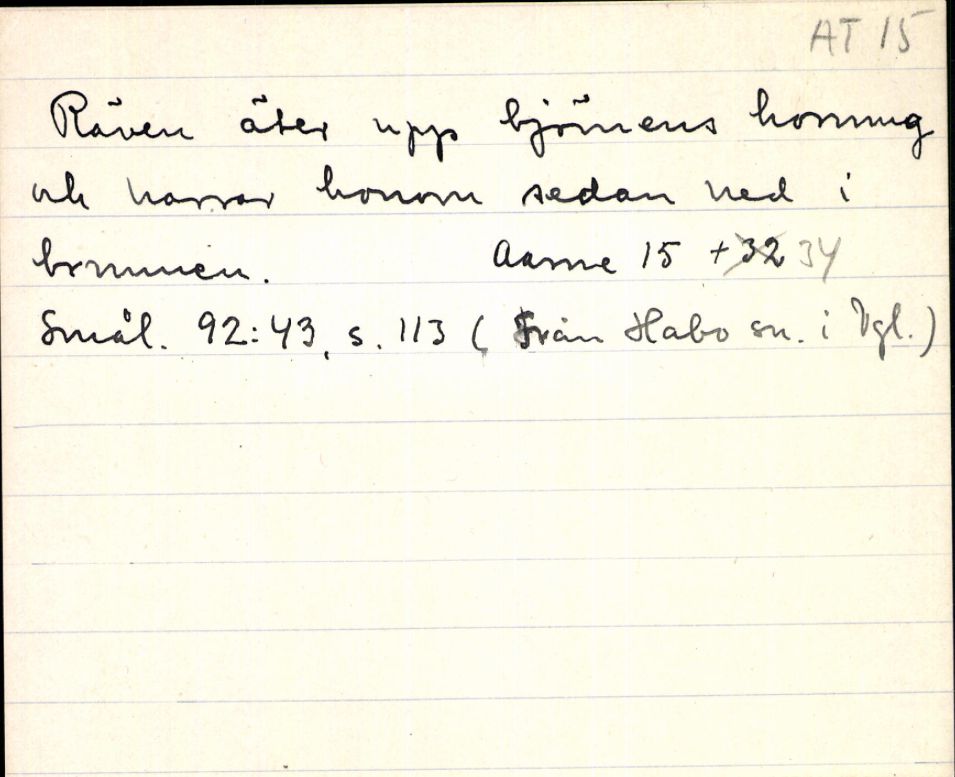 AT 15
Räven äter upp björnens honung
och narrar honom sedan ned i
brunnen. Aarne 15 + 32 34
Smål. 92:43, s. 113 (Från Habo sn. i Vgl.)